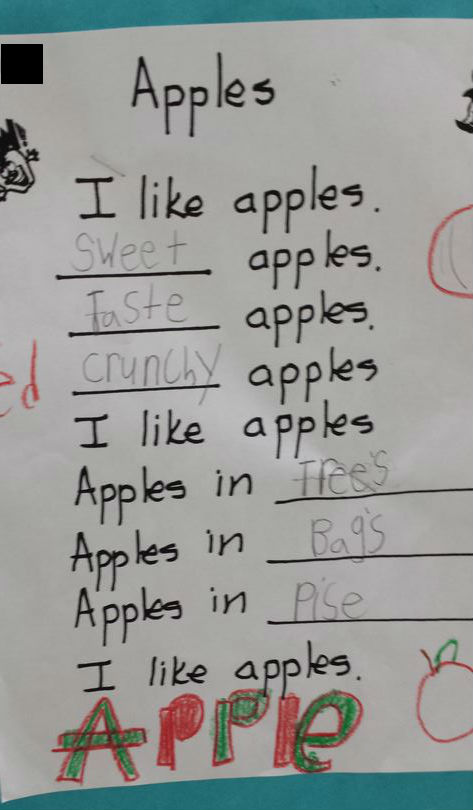 Apples
I like apples.
Sweet apples.
Taste apples.
ed
crunchy apples
I like apples
Apples in Tree's
Apples in Bag's
Apples in Pise
I like apples.
Apple